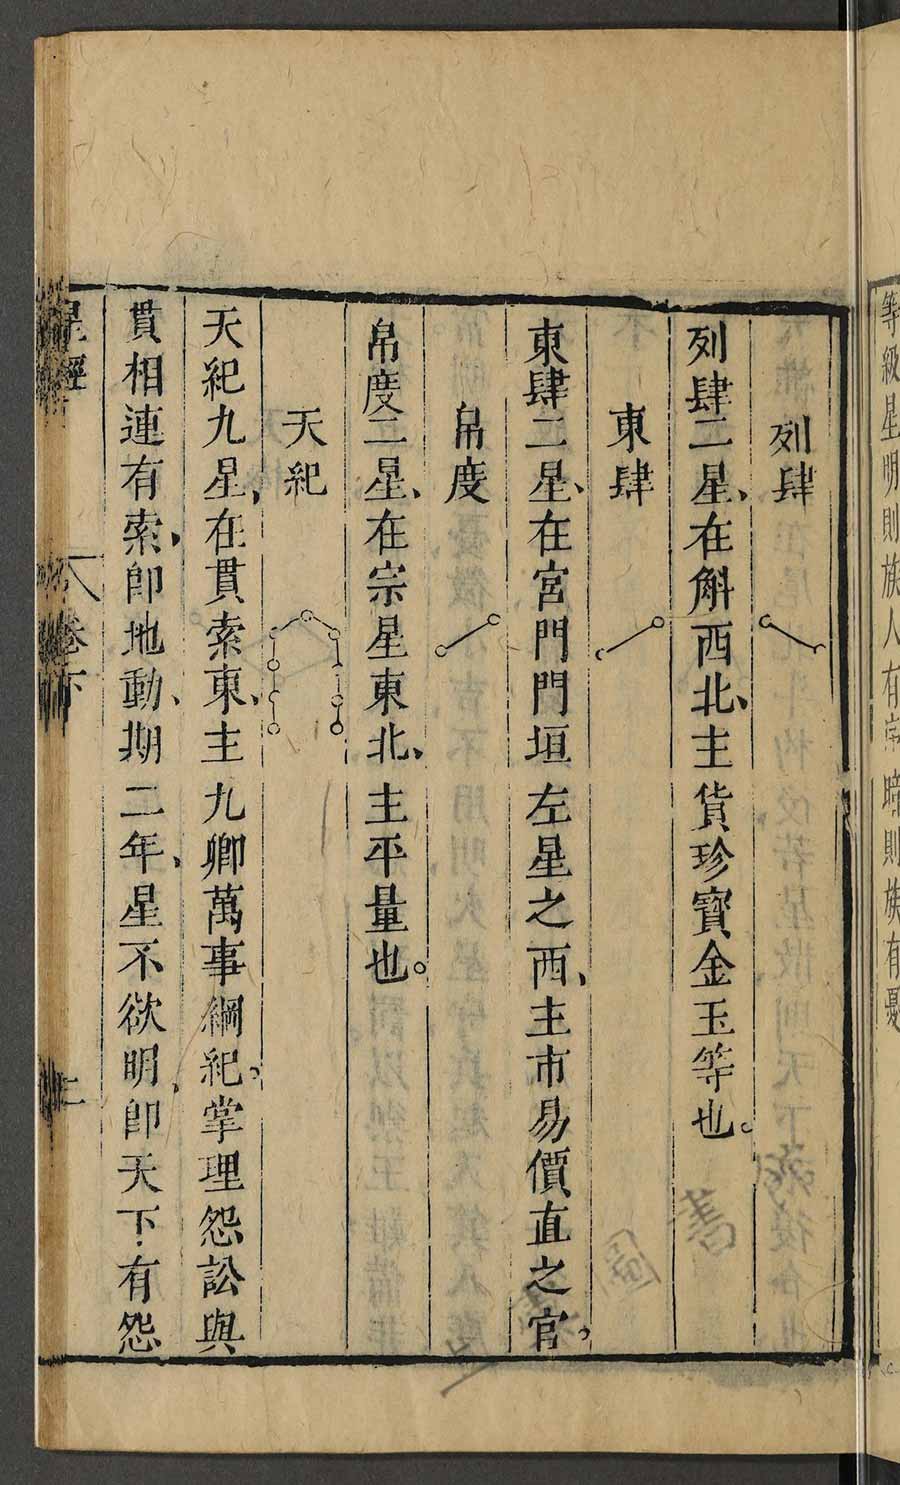 等級星明則族人有常暗則族有憂
列肆
列肆二星、在斛西北、主貨珍寶金玉等也。
東肆
東肆二星、在宮門門垣左星之西、主市易價直之官、
帛度
帛度二星、在宗星東北、主平量也。
天紀
天紀九星、在貫索東、主九卿萬事綱紀、掌理怨訟與
貫相連有索、即地動、期二年、星不欲明、即天下有怨
星經
卷下